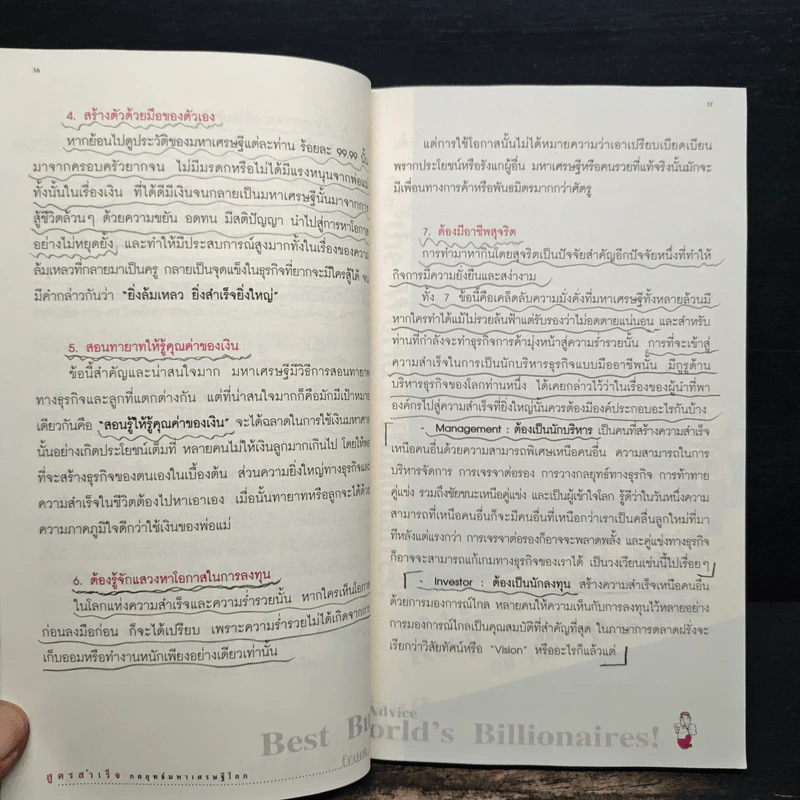 16
4. สร้างตัวด้วยมือของตัวเอง
หากย้อนไปดูประวัติของมหาเศรษฐีแต่ละท่าน ร้อยละ 99.99 นั้น
มาจากครอบครัวยากจน ไม่มีมรดกหรือไม่ได้มีแรงหนุนจากพ่อแม่
ทั้งนั้นในเรื่องเงิน ที่ได้ดีมีเงินจนกลายเป็นมหาเศรษฐีนั้นมาจากการ
สู้ชีวิตล้วนๆ ด้วยความขยัน อดทน มีสติปัญญา นำไปสู่การหาโอกาส
อย่างไม่หยุดยั้ง และทำให้มีประสบการณ์สูงมากทั้งในเรื่องของความ
ล้มเหลวที่กลายมาเป็นครู กลายเป็นจุดแข็งในธุรกิจที่ยากจะมีใครสู้ได้ จน
มีคำกล่าวกันว่า "ยิ่งล้มเหลว ยิ่งสำเร็จยิ่งใหญ่"
5. สอนทายาทให้รู้คุณค่าของเงิน
ข้อนี้สำคัญและน่าสนใจมาก มหาเศรษฐีมีวิธีการสอนทายาท
ทางธุรกิจและลูกที่แตกต่างกัน แต่ที่น่าสนใจมากก็คือมักมีเป้าหมาย
เดียวกันคือ "สอนรู้ให้รู้คุณค่าของเงิน" จะได้ฉลาดในการใช้เงินมหาศาล
นั้นอย่างเกิดประโยชน์เต็มที่ หลายคนไม่ให้เงินลูกมากเกินไป โดยให้พอ
ที่จะสร้างธุรกิจของตนเองในเบื้องต้น ส่วนความยิ่งใหญ่ทางธุรกิจและ
ความสำเร็จในชีวิตต้องไปหาเอาเอง เมื่อนั้นทายาทหรือลูกจะได้ด้วย
ความภาคภูมิใจดีกว่าใช้เงินของพ่อแม่
6. ต้องรู้จักแสวงหาโอกาสในการลงทุน
ในโลกแห่งความสำเร็จและความร่ำรวยนั้น หากใครเห็นโอกาส
ก่อนลงมือก่อน ก็จะได้เปรียบ เพราะความร่ำรวยไม่ได้เกิดจากการ
เก็บออมหรือทำงานหนักเพียงอย่างเดียวเท่านั้น
สูตรสำเร็จ กลยุทธ์มหาเศรษฐีโลก
17
แต่การใช้โอกาสนั้นไม่ได้หมายความว่าเอาเปรียบเบียดเบียน
พรากประโยชน์หรือรังแกผู้อื่น มหาเศรษฐีหรือคนรวยที่แท้จริงนั้นมักจะ
มีเพื่อนทางการค้าหรือพันธมิตรมากกว่าศัตรู
7. ต้องมีอาชีพสุจริต
การทำมาหากินโดยสุจริตเป็นปัจจัยสำคัญอีกปัจจัยหนึ่งที่ทำให้
กิจการมีความยั่งยืนและสง่างาม
ทั้ง 7 ข้อนี้คือเคล็ดลับความมั่งคั่งที่มหาเศรษฐีทั้งหลายล้วนมี
หากใครทำได้แม้ไม่รวยล้นฟ้าแต่รับรองว่าไม่อดตายแน่นอน และสำหรับ
ท่านที่กำลังจะทำธุรกิจการค้ามุ่งหน้าสู่ความร่ำรวยนั้น การที่จะเข้าสู่
ความสำเร็จในการเป็นนักบริหารธุรกิจแบบมืออาชีพนั้น มีกูรูด้าน
บริหารธุรกิจของโลกท่านหนึ่ง ได้เคยกล่าวไว้ว่าในเรื่องของผู้นำที่พา
องค์กรไปสู่ความสำเร็จที่ยิ่งใหญ่นั้นควรต้องมีองค์ประกอบอะไรกันบ้าง
- Management : ต้องเป็นนักบริหาร เป็นคนที่สร้างความสำเร็จ
เหนือคนอื่นด้วยความสามารถพิเศษเหนือคนอื่น ความสามารถในการ
บริหารจัดการ การเจรจาต่อรอง การวางกลยุทธ์ทางธุรกิจ การท้าทาย
คู่แข่ง รวมถึงชัยชนะเหนือคู่แข่ง และเป็นผู้เข้าใจโลก รู้ดีว่าในวันหนึ่งความ
สามารถที่เหนือคนอื่นก็จะมีคนอื่นที่เหนือกว่าเราเป็นคลื่นลูกใหม่ที่มา
ทีหลังแต่แรงกว่า การเจรจาต่อรองก็อาจจะพลาดพลั้ง และคู่แข่งทางธุรกิจ
ก็อาจจะสามารถแก้เกมทางธุรกิจของเราได้ เป็นวงเวียนเช่นนี้ไปเรื่อยๆ
- Investor : ต้องเป็นนักลงทุน สร้างความสำเร็จเหนือคนอื่น
ด้วยการมองการณ์ไกล หลายคนให้ความเห็นกับการลงทุนไว้หลายอย่าง
การมองการณ์ไกลเป็นคุณสมบัติที่สำคัญที่สุด ในภาษาการตลาดฝรั่งจะ
เรียกว่าวิสัยทัศน์หรือ "Vision" หรืออะไรก็แล้วแต่
Advice
Best Bu
orld's Billionaires!